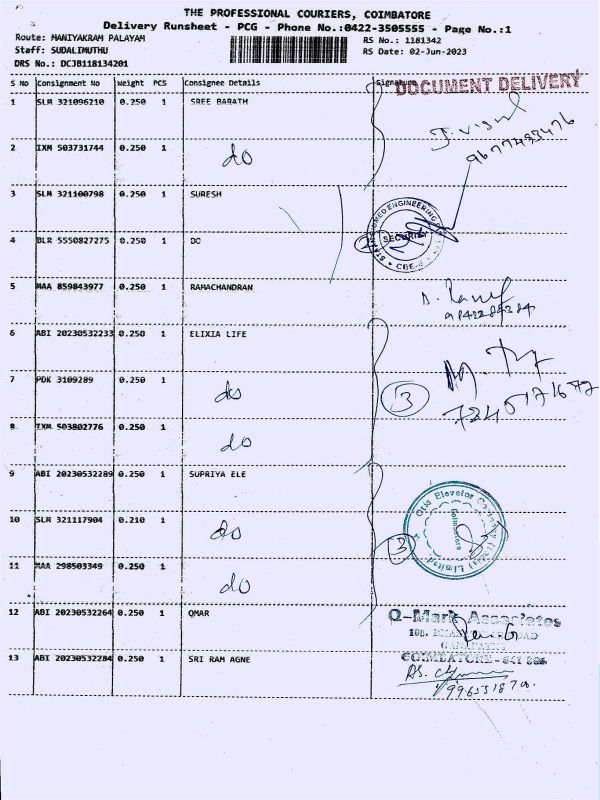 THE PROFESSIONAL COURIERS, COIMBATORE
Delivery Runsheet - PCG - Phone No.:0422-3505555 - Page No.:1
Route: MANIYAKRAM PALAYAM RS No.: 1181342
Staff: SUDALIMUTHU RS Date: 02-Jun-2023
DRS No.: DCJB118134201
S No Consignment No Weight PCS Consignee Details Signature
DOCUMENT DELIVERY
1 SLM 321096210 0.250 1 SREE BARATH
9677433476
2 IXM 503731744 0.250 1 do
3 SLM 321100798 0.250 1 SURESH
4 BLR 5550827275 0.250 1 DO
2 SECURITY
CBE
5 MAA 859843977 0.250 1 RAMACHANDRAN
6 ABI 20230532233 0.250 1 ELIXIA LIFE
7 PDK 3109289 0.250 1 do
3
8 IXM 503802776 1 do
9 ABI 20230532289 0.250 1 SUPRIYA ELE
10 SLM 321117904 0.210 1 do
3 Otis Elevator Company (India) Limited
Coimbatore
11 MAA 298503349 0.250 1 do
12 ABI 20230532264 0.250 1 QMAR
Q-Mark Associates
13 ABI 20230532284 0.250 1 SRI RAM AGNE
COIMBATORE - 641